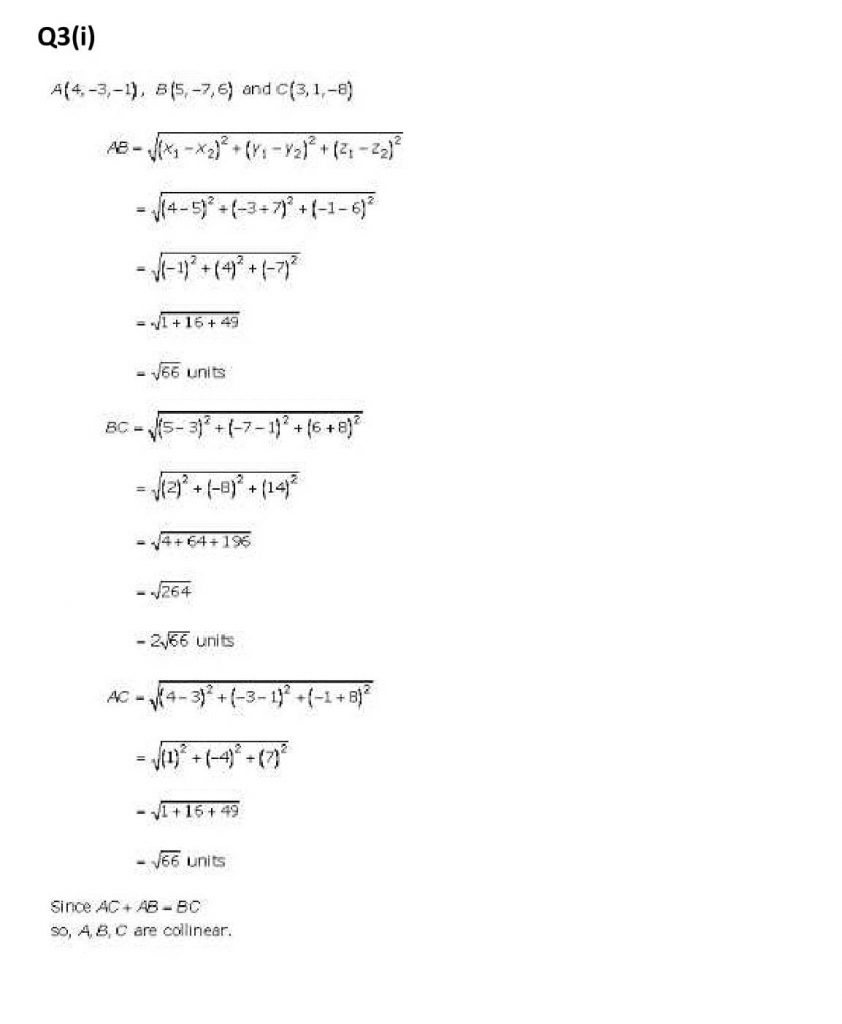 Q3(i)
A(4,-3,-1), B(5,-7,6) and C(3,1,-8)
AB = √((x₁ - x₂)² + (y₁ - y₂)² + (z₁ - z₂)²)
= √((4-5)² + (-3+7)² + (-1-6)²)
= √((-1)² + (4)² + (-7)²)
= √(1+16+49)
= √66 units
BC = √((5-3)² + (-7-1)² + (6+8)²)
= √((2)² + (-8)² + (14)²)
= √(4+64+196)
= √264
= 2√66 units
AC = √((4-3)² + (-3-1)² + (-1+8)²)
= √((1)² + (-4)² + (7)²)
= √(1+16+49)
= √66 units
Since AC + AB = BC
so, A, B, C are collinear.